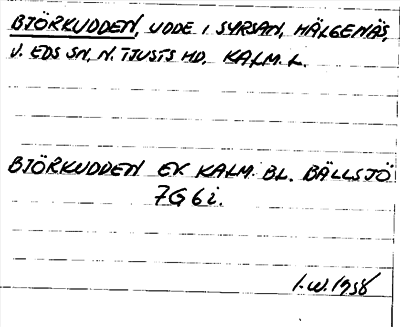 BJÖRKUDDEN, UDDE I SYRSAN, HÄLGENÄS,
V. EDS SN, N. TJUSTS HD, KALM. L.
BJÖRKUDDEN EK KALM. BL. BÄLLSJÖ
7G6i.
I.W. 1958